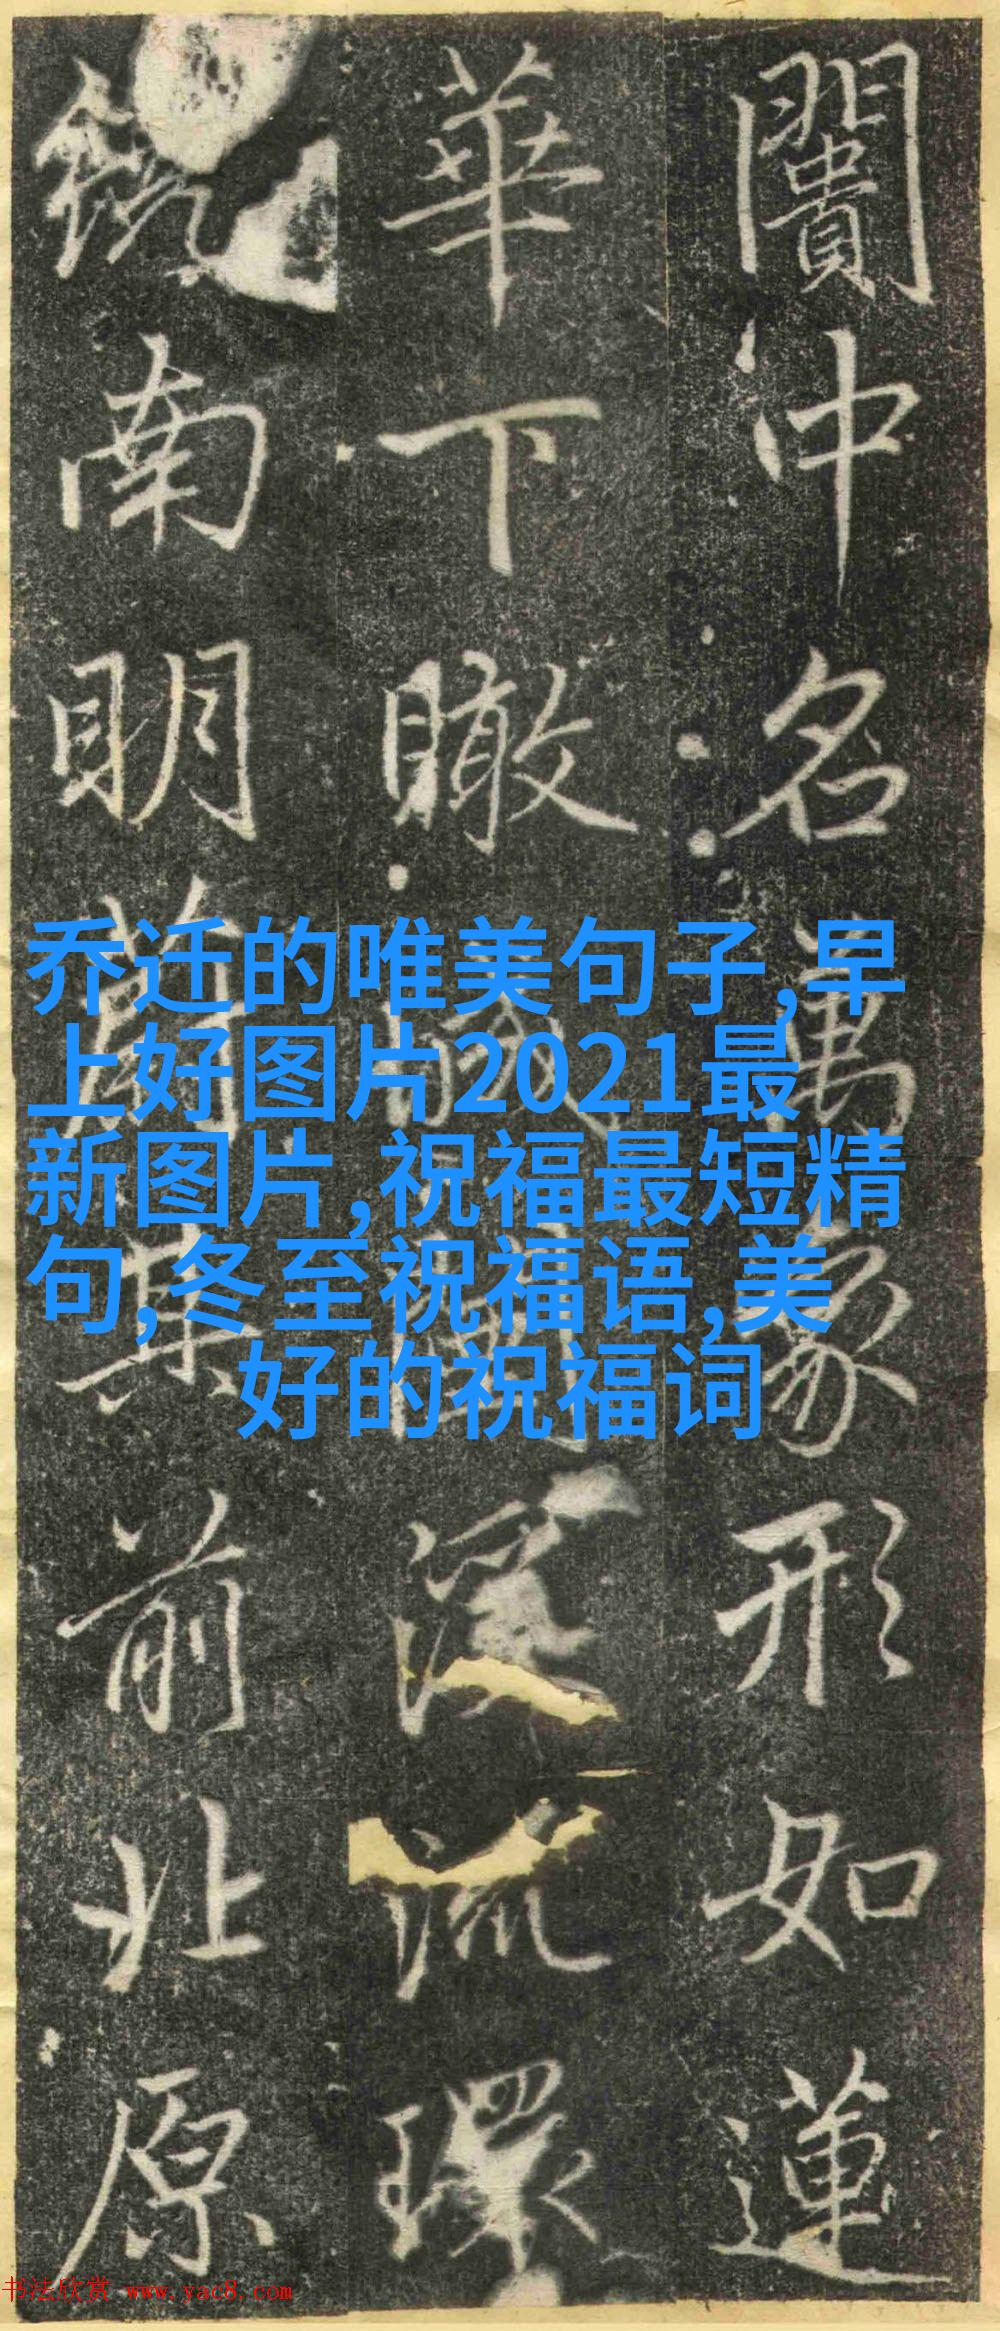 闠中名萬象形如蓮
華下瞰
流環
南明
其前北原
乔迁的唯美句子,早
上好图片2021最
新图片,祝福最短精
句,冬至祝福语,美
好的祝福词
书法欣赏 www.yac8.com